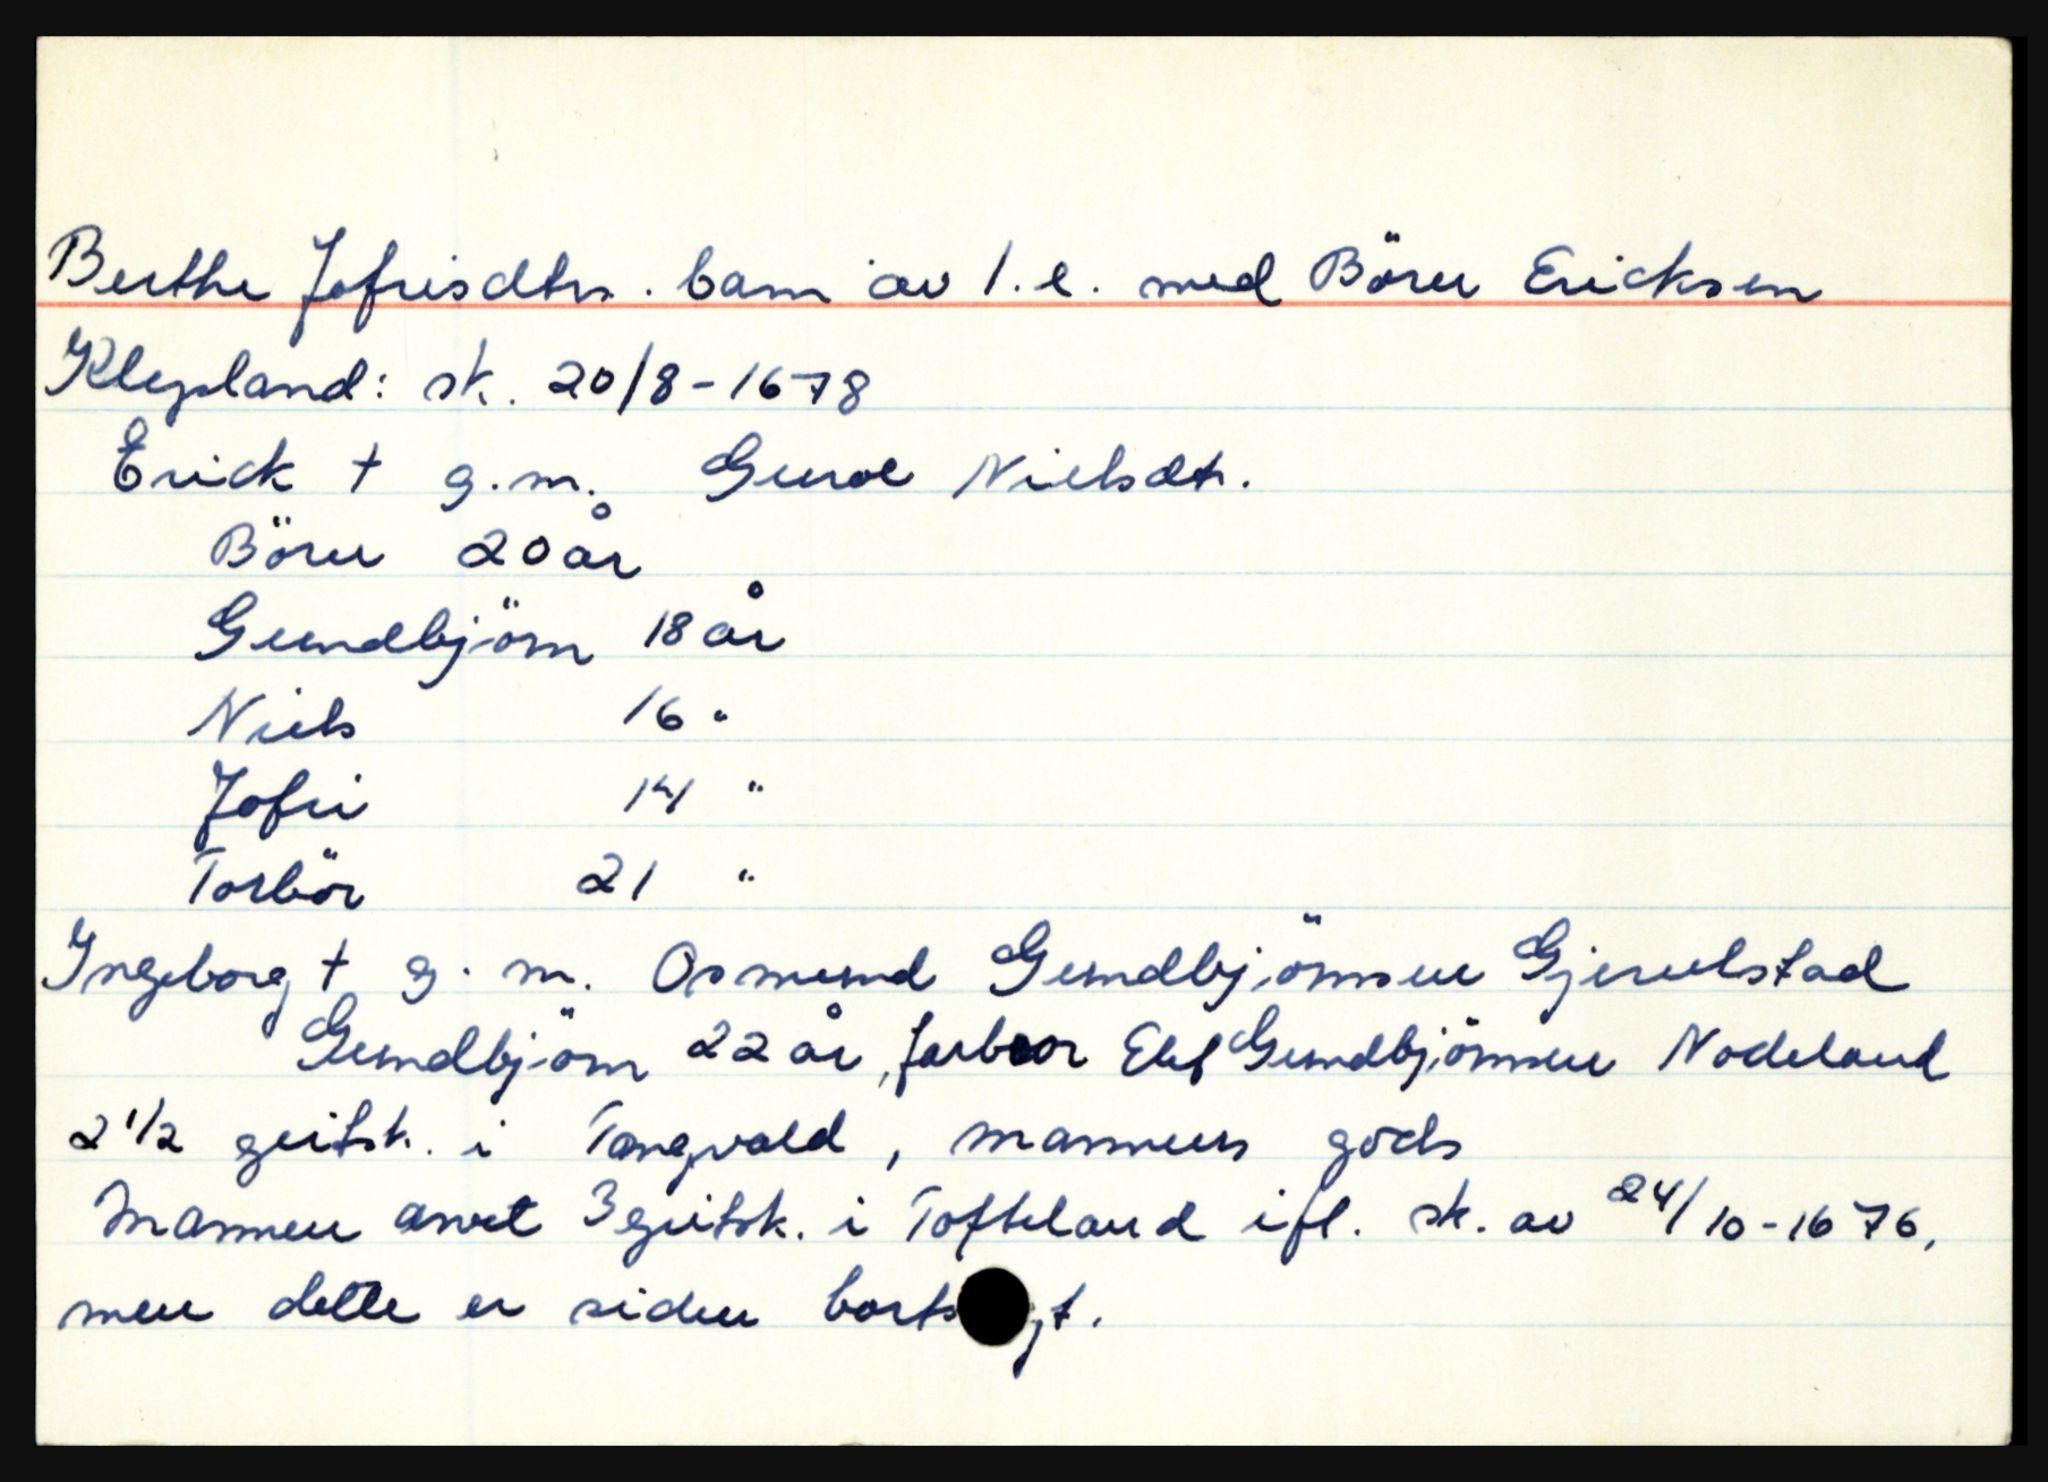 Berthe Jofrisdtr. barn av 1. e. med Börre Ericksen
Klepland: sk. 20/8-1678
Erick † g.m. Guroe Nielsdtr.
Börre 20 år
Gundbjörn 18 år
Niels 16 "
Jofri 14 "
Torbör 21 "
Ingeborg † g. m. Osmund Gundbjörnsen Gjervelstad
Gundbjörn 22 år, farbror Elef Gundbjörnsen Nodeland
2 1/2 geitsk. i Tangvald, mannens gods
Mannen arvet 3 geitsk. i Tofteland ifl. sk. av 24/10-1676,
men dette er siden